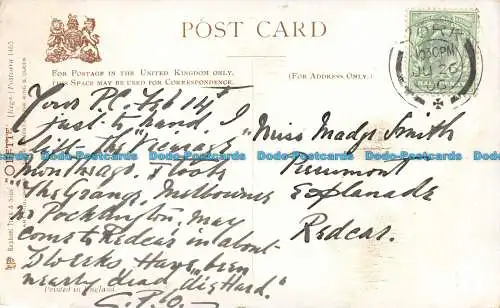 POST CARD
FOR POSTAGE IN THE UNITED KINGDOM ONLY,
THIS SPACE MAY BE USED FOR CORRESPONDENCE.
(FOR ADDRESS ONLY.)
YORK
Your P.C. Feb 14th
just to hand. I
left the "Vicarage"
months ago, & took
"The Grange, Melbourne
Pocklington, may
come to Redcar in about
3 weeks Have been
nearly dead, "die Hard".
Miss Madge Smith
Esplanade
Redcar.
"OILETTE"
Raphael Tuck & Sons'
Postcard 1465
Printed in England
Dodo Postcards.com Dodo Postcards.com Dodo Postcards.com Dodo Postcards.com